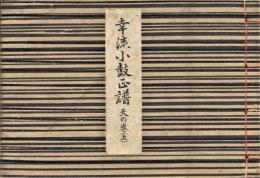 幸流小鼓正譜 天の巻(上)